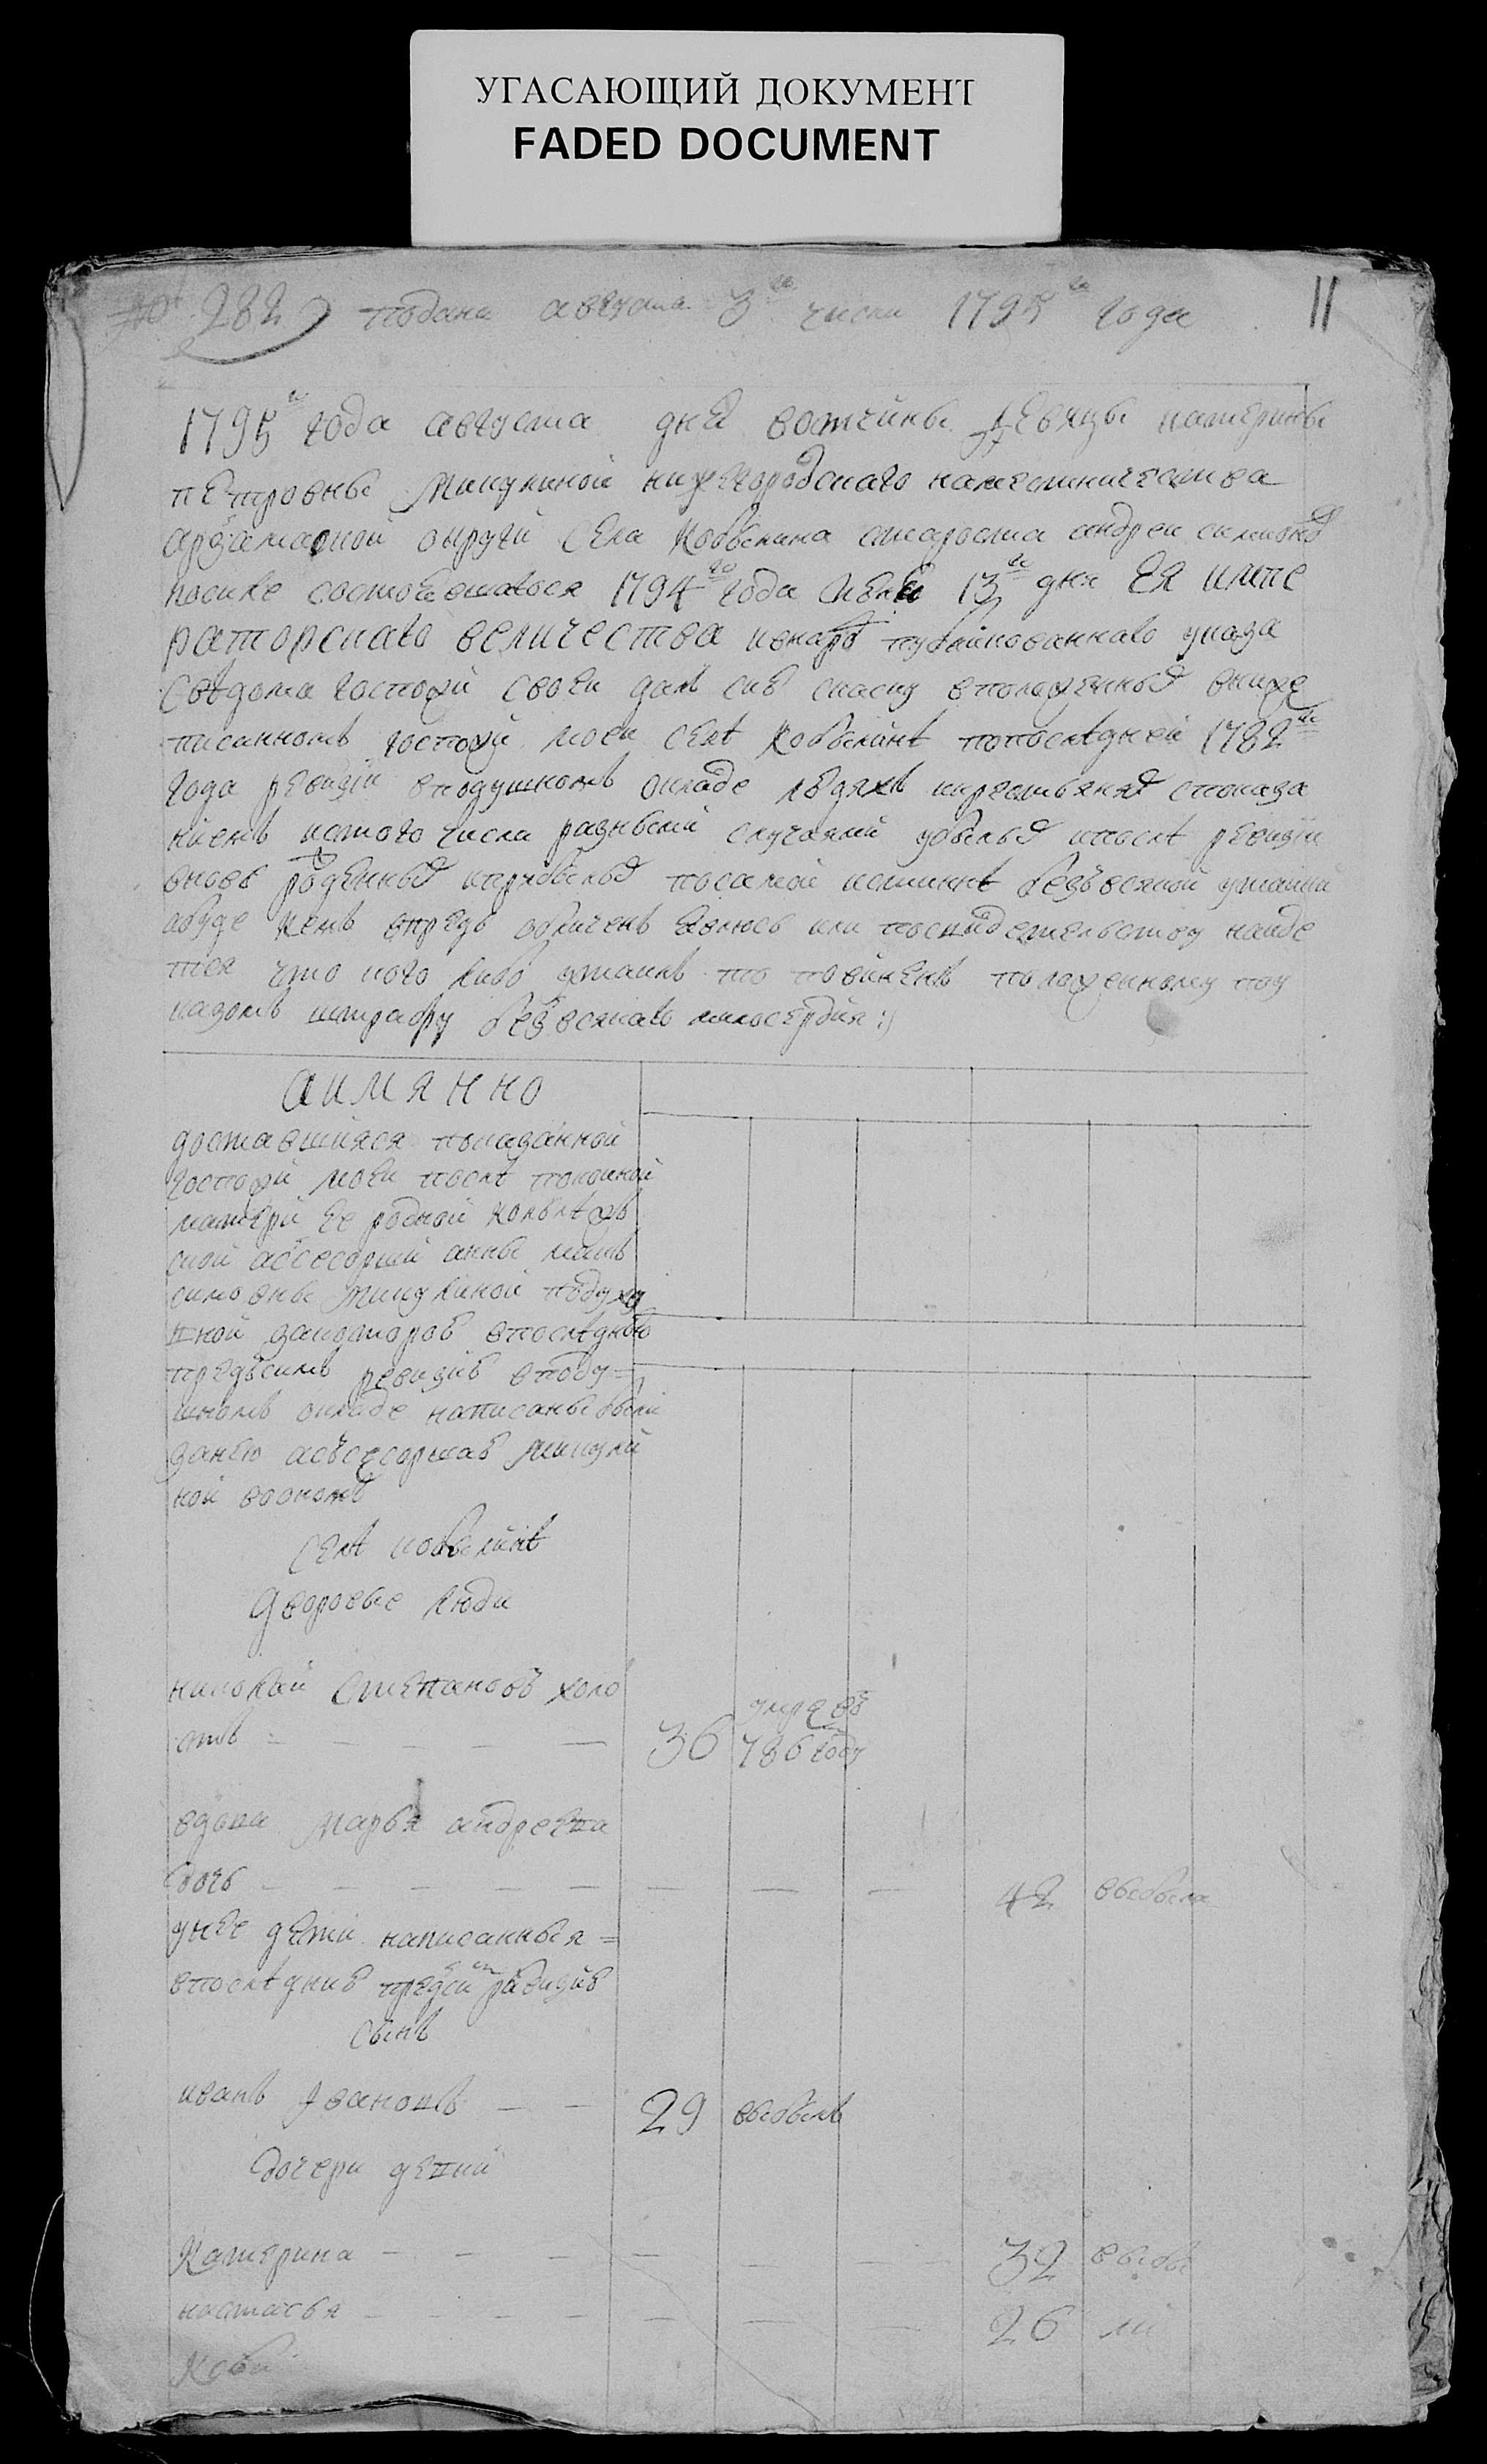 УГАСАЮЩИЙ ДОКУМЕНТ
FADED DOCUMENT
№ 282 подана августа 3го числа 1795го года 11
1795го года августа дня вотчины девицы катерины
петровны Микулиной нижегородскаго наместничества
арзамаской округи села Кобылина староста андреи симионов
посиле состоевшагося 1794го года июня 23го дня ЕЯ импе
раторскаго величества ивнарод публикованнаго указа
сведома госпожи своеи далъ сию скаску вположенных вниже
писанномъ госпожи моеи селѣ Кобылинѣ попоследнеи 1782го
года ревизии вподушномъ окладе людяхъ икрестьянях споказа
ниемъ истого числа разными случаями убылых ипослѣ ревизии
вновь рожденных иприбылых посамои истиннѣ безъвсякой утаики
абуде кемъ впредь обличенъ явлюсь или посвидетельству наиде
тся что кого либо утаилъ то повиненъ положенному поу
казомъ штрафу безъвсякаго милосердия :/
аимянно
доставшияся показанной
госпожи моеи послѣ покоиной
матери ее родной колѣжъ
ской асѣсорши анны макъ
симовны Микулиной подухо
вной закоторою впоследнюю
предъсимъ ревизию вподу=
шномъ окладе написаны были
занею асъсесоршаю Микули
ной воономъ
селѣ кобылинѣ
дворовые люди
николаи Степановъ холо
стъ 36 умре въ 786 году
вдова Марья андреева
дочь 42 выбыла
унее дети написанныя=
впоследнию пред сим ревизию
сынъ
иванъ Ивановъ 29 выбылъ
дочери девки
Катерина 32 выбы
настасья 26 ли